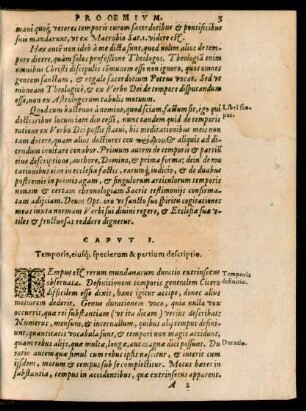 PROOEMIVM. 3
mani quoq; veteres temporis curam sacerdotibus & pontificibus
suis mandarunt, vt ex Macrobio Sat. 1. videre est.
Hæc autē non ideò à me dicta sunt, quod nolim alios de tempore
dicere, quàm solos professione Theologos. Theologia enim
omnibus Christi discipulis communem esse non ignoro, quos omnes
gentem sanctam, & regale sacerdotium Petrus vocat. Sed vt
rationem Theologicè, & ex Verbo Dei de tempore disputandum
esse, non ex Astrologorum tabulis moneam.
Quod cum hactenus à nemine, quod sciam, factum sit, ego qui
doctoribus locum iam diu cessi, nunc tandem quid de temporis
ratione ex Verbo Dei possis statui, his meditationibus meis non
tam docere, quàm alios doctiores
dicendum inuitare conabor. Primum autem de temporis & partium
eius descriptione, authore, Domino, & prima forma; dein de mutationibus
in ea in ecclesia factis, earumq; iudicio, & de duabus
postremis in genti agam, & singulorum articulorum temporis
notitiam & certam chronologiam Sacris testimonijs confirmatam
adjiciam. Deum Opt. oro vt sancto suo spiritu cogitationes
meas iuxta normam Verbi sui diuini regere, & Ecclesiæ suæ vtiles
& fructuosas reddere dignetur.
CAPVT I.
Temporis, eiusq; specierum & partium descriptio.
TEmpus est rerum mundanarum ductio extrinsecus
obseruata. Definitionem temporis generalem Cicero
difficilem esse dixit, hanc igitur accipe, donec alius
meliorem dederit. Genus durationem voco, quia nulla vox
occurrit, quæ rei substantiam (vt ita dicam) verius describat.
Numerus, mensus, & interuallum, quibus alij tempus definiunt,
quantitatis vocabula sunt, & temporis non magis accidunt,
quàm rebus alijs, quæ multæ, longæ, aut magnæ dici possunt. Duratio
autem quæ simul cum rebus ipsis nascitur, & interit cum
ijsdem, motum & tempus sub se complectitur. Motus hæret in
substantia, tempus in accidentibus, quæ extrinsecus apparent.
A 2
Temporis
definitio.
Duratio.